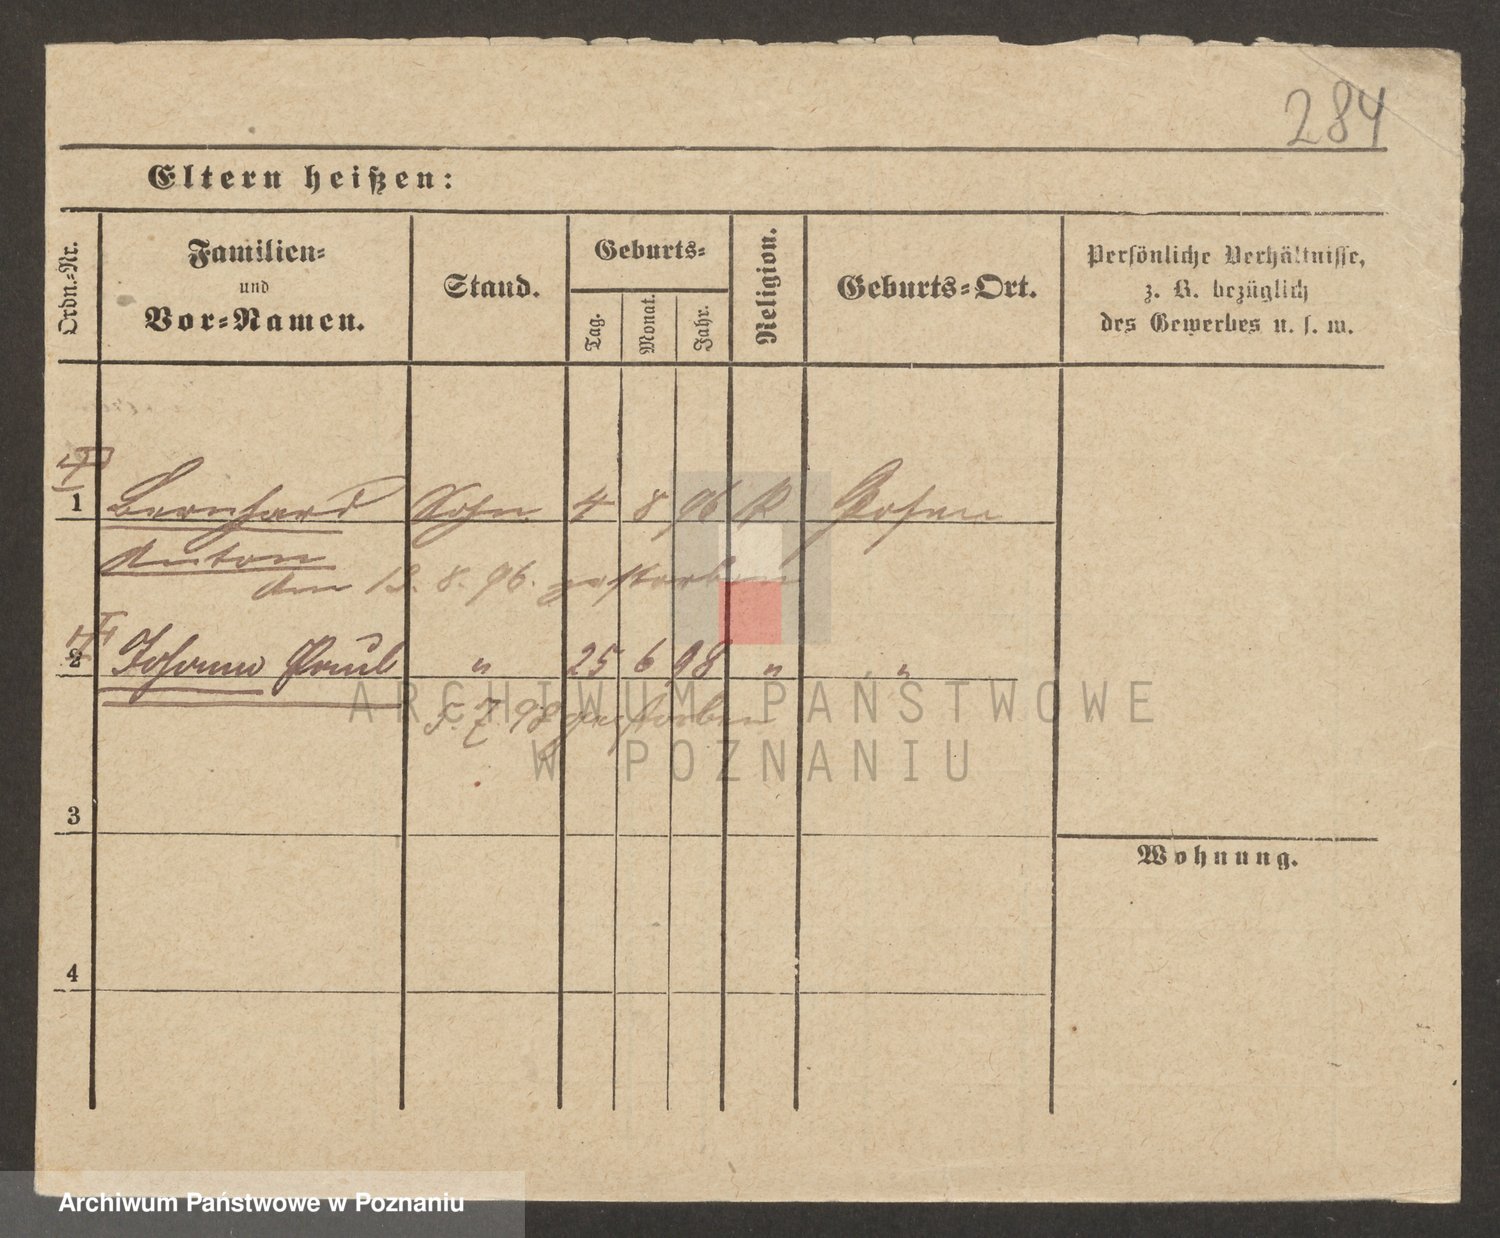 284
Eltern heißen:
Ordn.-Nr.
Familien-
und
Vor-Namen.
Stand.
Geburts-
Tag.
Monat.
Jahr.
Religion.
Geburts-Ort.
Persönliche Verhältnisse,
z. B. bezüglich
des Gewerbes u. s. w.
1 Bernhard Sohn 4 8 96 K Posen
Anton
am 13. 8. 96. gestorben
2 Johann Paul " 25 6 98 " "
5. 7. 98 gestorben
ARCHIWUM PAŃSTWOWE
W POZNANIU
3
Wohnung.
4
Archiwum Państwowe w Poznaniu